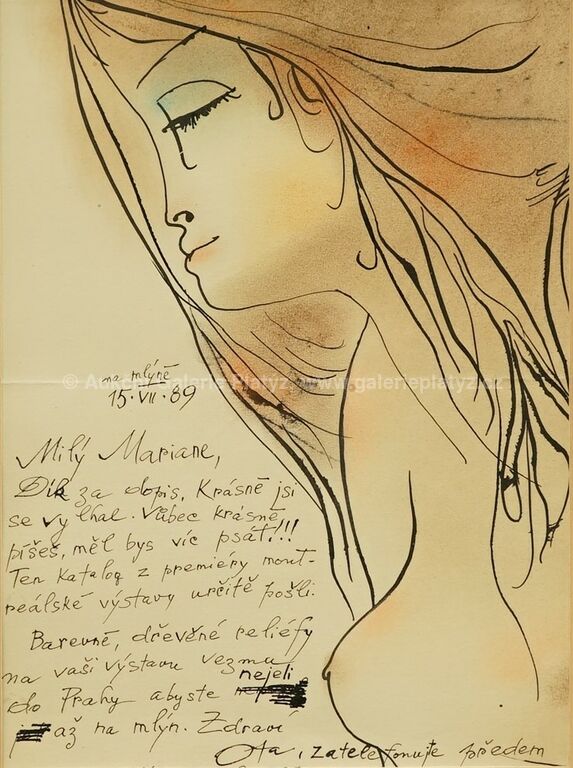 na mlýně
15·VII·89
© Aukční Galerie Platýz, www.galerieplatyz.cz
Milý Mariane,
Dík za dopis, Krásně jsi
se vylhal. Vůbec krásně
píšeš, měl bys víc psát!!!
Ten Katalog z premiéry mont-
reálské výstavy určitě pošli.
Barevné, dřevěné reliéfy
na vaši výstavu vezmu
nejeli
do Prahy abyste
až na mlýn. Zdraví
Ota, zatelefonujte předem